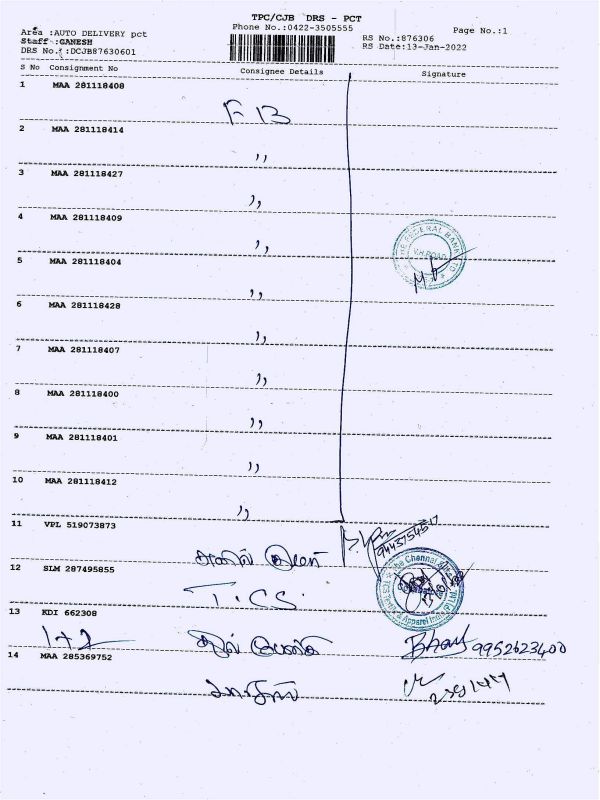 TPC/CJB DRS - PCT
Area :AUTO DELIVERY pct Phone No.:0422-3505555 Page No.:1
Staff :GANESH RS No.:876306
DRS No.::DCJB87630601 RS Date:13-Jan-2022
S No Consignment No Consignee Details Signature
1 MAA 281118408
FB
2 MAA 281118414
,,
3 MAA 281118427
,,
4 MAA 281118409
,,
THE FEDERAL BANK LTD
5 MAA 281118404
,,
6 MAA 281118428
,,
7 MAA 281118407
,,
8 MAA 281118400
,,
9 MAA 281118401
,,
10 MAA 281118412
,,
11 VPL 519073873
12 SLM 287495855
T.C.S.
The Chennai
13 KDI 662308
1+2 9952623400
14 MAA 285369752